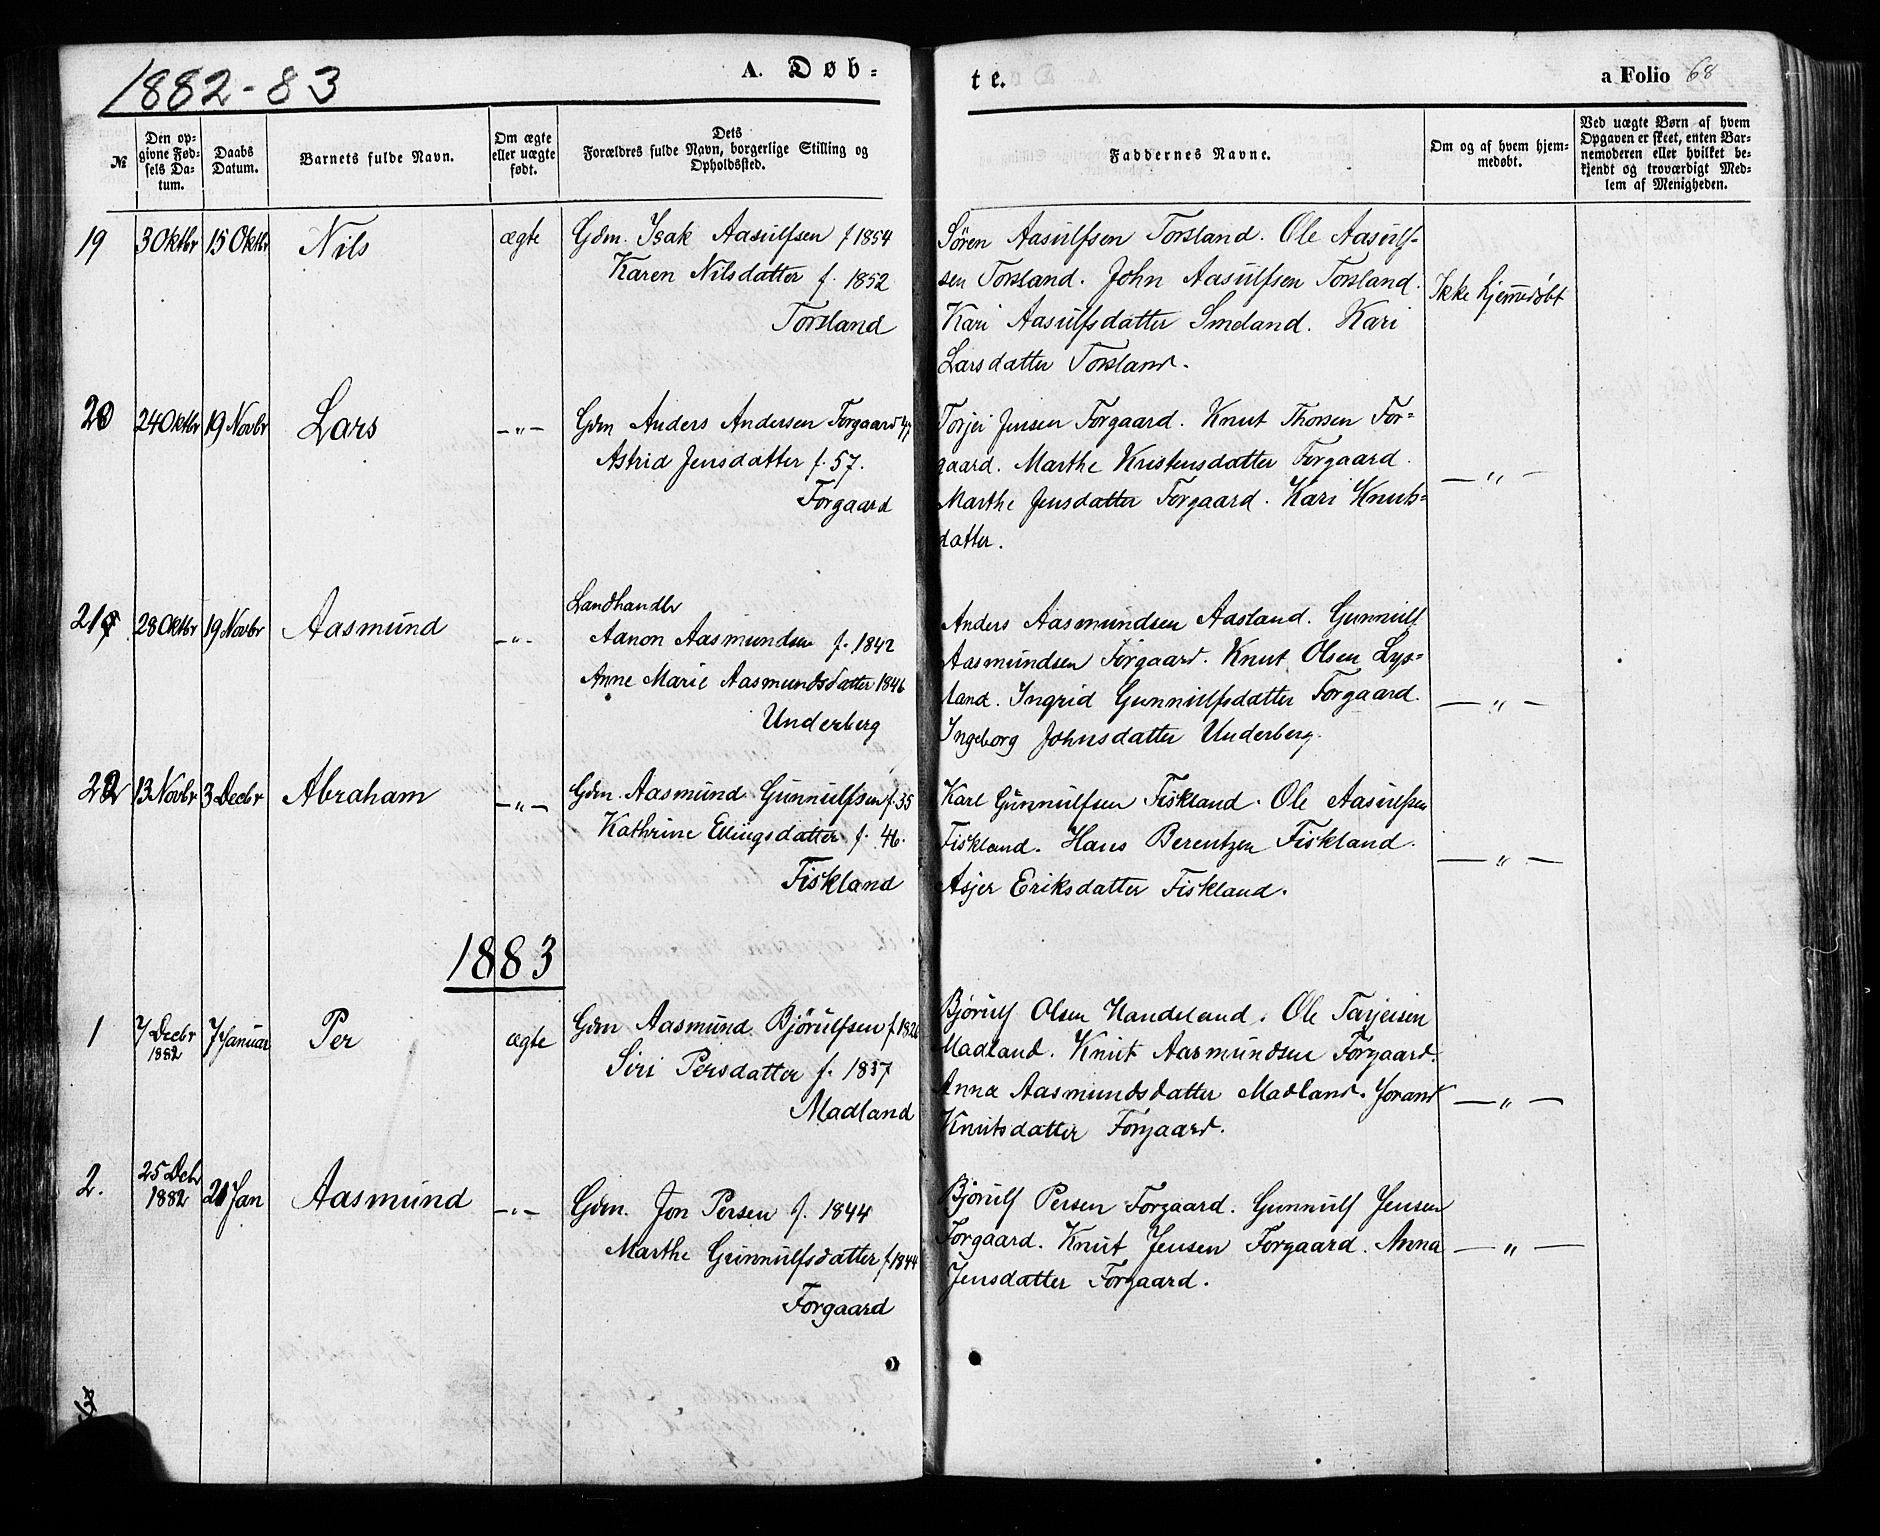 1882-83
A. Døb-
te.
a Folio 68
№
Den op-
givne Fød-
sels Da-
tum.
Daabs
Datum.
Barnets fulde Navn.
Om ægte
eller uægte
født.
Dets
Forældres fulde Navn, borgerlige Stilling og
Opholdssted.
Faddernes Navne.
Om og af hvem hjem-
medøbt.
Ved uægte Børn af hvem
Opgaven er skeet, enten Bar-
nemoderen eller hvilket be-
kjendt og troværdigt Med-
lem af Menigheden.
19
3 Oktbr
15 Oktbr
Nils
ægte
Gdm. Isak Aasulfsen f 1854
Karen Nilsdatter f. 1852
Torsland
Søren Aasulfsen Torsland. Ole Aasulf-
sen Torsland. John Aasulfsen Torsland.
Kari Aasulfsdatter Smeland. Kari
Larsdatter Torsland.
Ikke hjemmedøbt
20
24 Oktbr
19 Novbr
Lars
—„—
Gdm Anders Andersen Forgaard 47
Astrid Jensdatter f. 57.
Forgaard
Torjei Jensen Forgaard. Knut Thorsen For-
gaard. Marthe Kristensdatter Forgaard.
Marthe Jensdatter Forgaard. Kari Knuts-
datter.
—„—
21
28 Oktbr
19 Novbr
Aasmund
—„—
Landhandlr
Aanon Aasmundsen f. 1842
Anne Marie Aasmundsdatter 1846
Underberg
Anders Aasmundsen Aasland. Gunnulf
Aasmundsen Forgaard. Knut Olsen Lys-
land. Ingrid Gunnulfsdatter Forgaard.
Ingeborg Johnsdatter Underberg.
—„—
22
13 Novbr
3 Decbr
Abraham
—„—
Gdm. Aasmund Gunnulfsen f. 35
Kathrine Ellingsdatter f. 46.
Fiskland
Karl Gunnulfsen Fiskland. Ole Aasulfsen
Fiskland. Hans Berentzen Fiskland.
Asjer Eriksdatter Fiskland.
—„—
1883
1
7 Decbr
1882
7 Januar
Per
ægte
Gdm Aasmund Bjørulfsen f. 1826
Siri Persdatter f. 1837
Madland
Bjørulf Olsen Handeland. Ole Tarjeisen
Madland. Knut Aasmundsen Forgaard.
Anna Aasmundsdatter Madland. Jorand
Knutsdatter Forgaard.
—„—
2.
25 Debr
1882
21 Jan
Aasmund
—„—
Gdm. Jon Persen f. 1844
Marthe Gunnulfsdatter f 1844
Forgaard
Bjørulf Persen Forgaard. Gunnulf Jensen
Forgaard. Knut Jensen Forgaard. Anna
Jensdatter Forgaard.
—„—